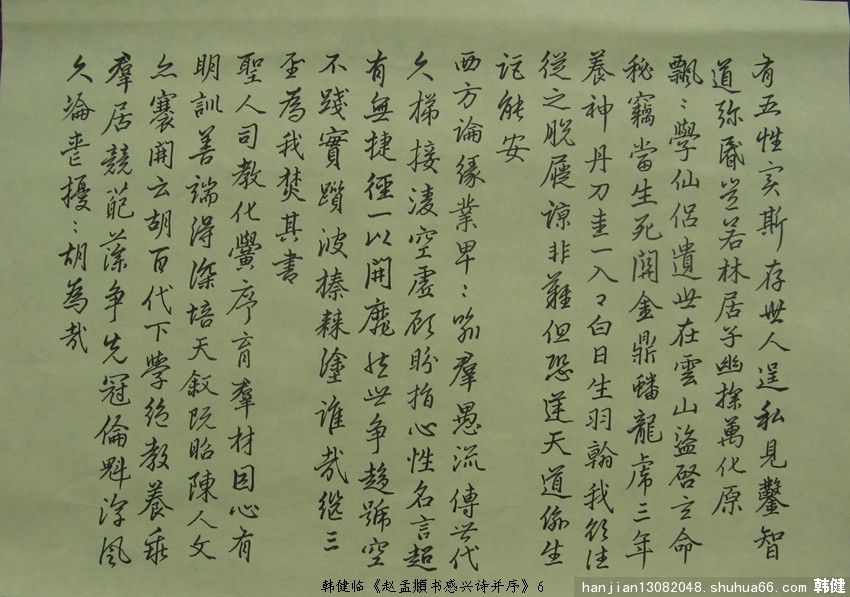 有五性實斯存世人逞私見鑿智
道弥昏豈若林居子幽探萬化原
飄〻學仙侣遺世在雲山盗啓玄命
秘竊當生死關金鼎蟠龍虎三年
養神丹刀圭一入口白日生羽翰我欲往
從之脱屣諒非難但恐逆天道偷生
詎能安
西方論緣業卑〻喻羣愚流傳世代
久梯接凌空虚顧盼指心性名言超
有無捷徑一以開靡然世争趨號空
不踐實躓彼榛棘塗誰哉繼三
聖為我焚其書
聖人司教化黌序育羣材因心有
明訓善端得深培天叙既昭陳人文
亦褰開云胡百代下學絶教養乖
羣居競葩藻争先冠倫魁淳風
久淪喪擾〻胡為哉
韩健临《赵孟頫书感兴诗并序》6
hanjian13082048.shuhua66.com 韩健